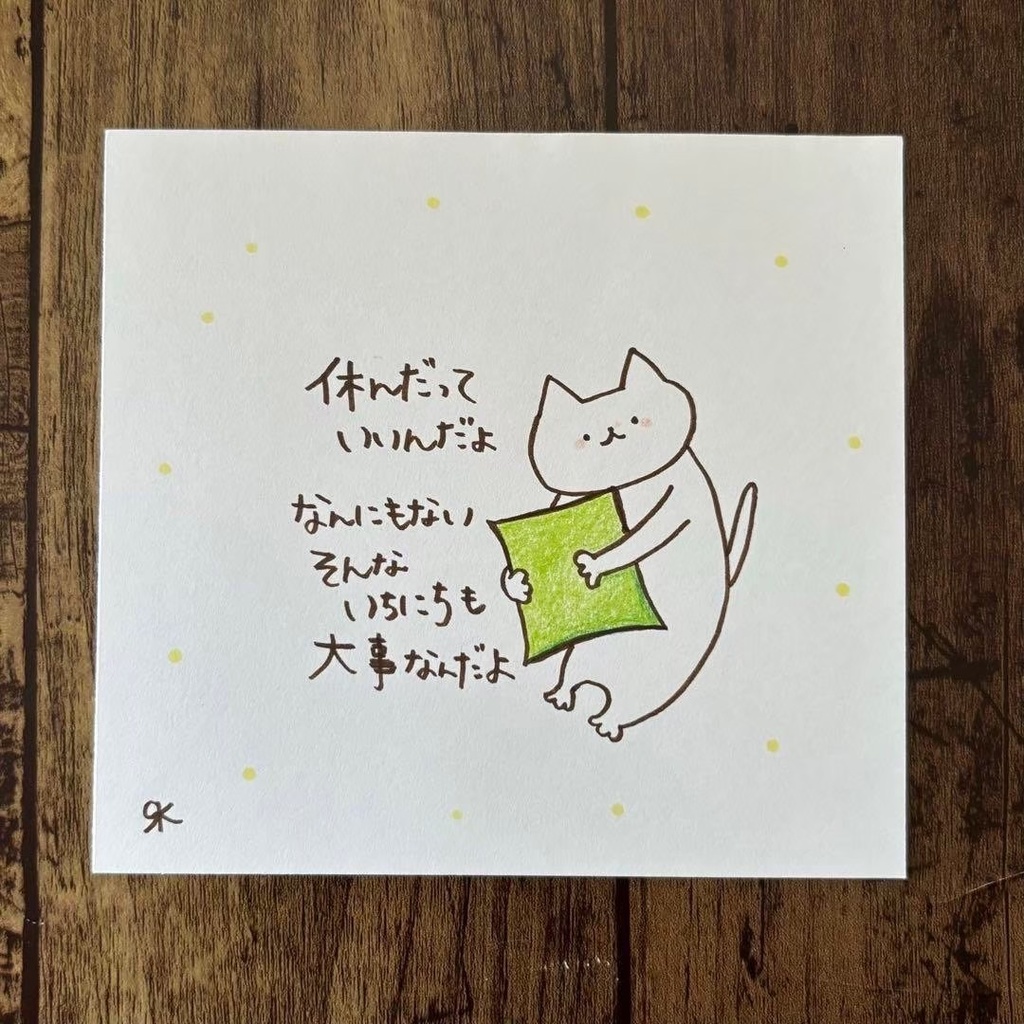 休んだって
いいんだよ
なんにもない
そんな
いちにちも
大事なんだよ